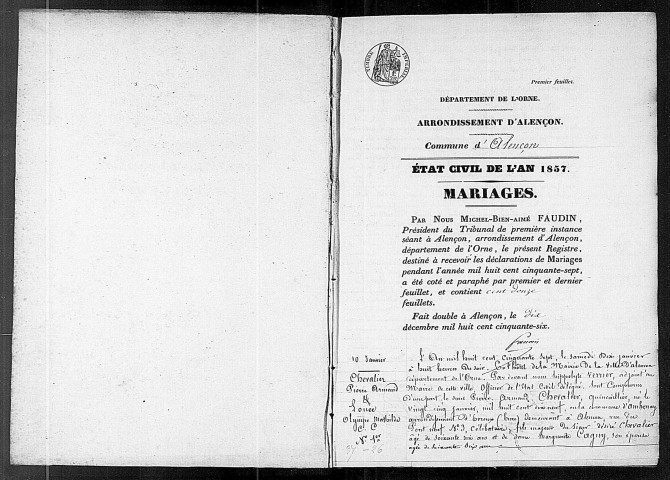 Premier feuillet.
DÉPARTEMENT DE L'ORNE.
ARRONDISSEMENT D'ALENÇON.
Commune d'Alençon
ÉTAT CIVIL DE L'AN 1857.
MARIAGES.
PAR NOUS MICHEL-BIEN-AIMÉ FAUDIN,
Président du Tribunal de première instance
séant à Alençon, arrondissement d'Alençon,
département de l'Orne, le présent Registre,
destiné à recevoir les déclarations de Mariages
pendant l'année mil huit cent cinquante-sept,
a été coté et paraphé par premier et dernier
feuillet, et contient cent douze
feuillets.
Fait double à Alençon, le dix
décembre mil huit cent cinquante-six.
10 Janvier
Chevalier
Pierre Armand
&
Olympe Mathilde
N° 1er
L'An mil huit cent cinquante sept, le samedi dix janvier
à huit heures du soir, En l'hôtel de la Mairie de la Ville d'alençon
département de l'Orne. Par devant nous hippolyte Verrier, adjoint au
Maire de cette ville, Officier de l'Etat Civil délégué. Sont Comparus
D'une part le sieur Pierre Armand Chevalier, quincaillier, né le
Vingt cinq janvier, mil huit cent, en la commune d'Ambenay
arrondissement (Eure) demeurant à Alençon rue du
Pont neuf N° 3, célibataire, fils majeur du Sieur désiré Chevalier
âgé de soixante dix ans et de dame Marguerite Cagny, son épouse
âgée de soixante dix ans